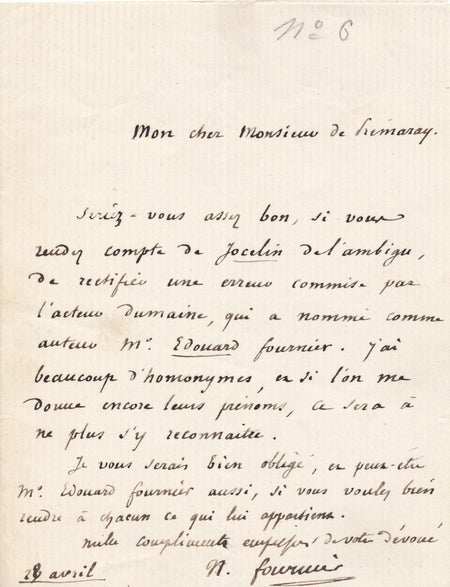 No 6
Mon cher Monsieur de Prémaray.
Seriez-vous assez bon, si vous
rendez compte de Jocelin de l'ambigu,
de rectifier une erreur commise par
l'acteur Dumaine, qui a nommé comme
auteur Mr. Edouard fournier. J'ai
beaucoup d'homonymes, et si l'on me
donne encore leurs prénoms, ce sera à
ne plus s'y reconnaitre.
Je vous serais bien obligé, et peut-etre
Mr. Edouard fournier aussi, si vous voulez bien
rendre à chacun ce qui lui appartient.
mille compliments empressés de votre dévoué
28 avril N. fournier